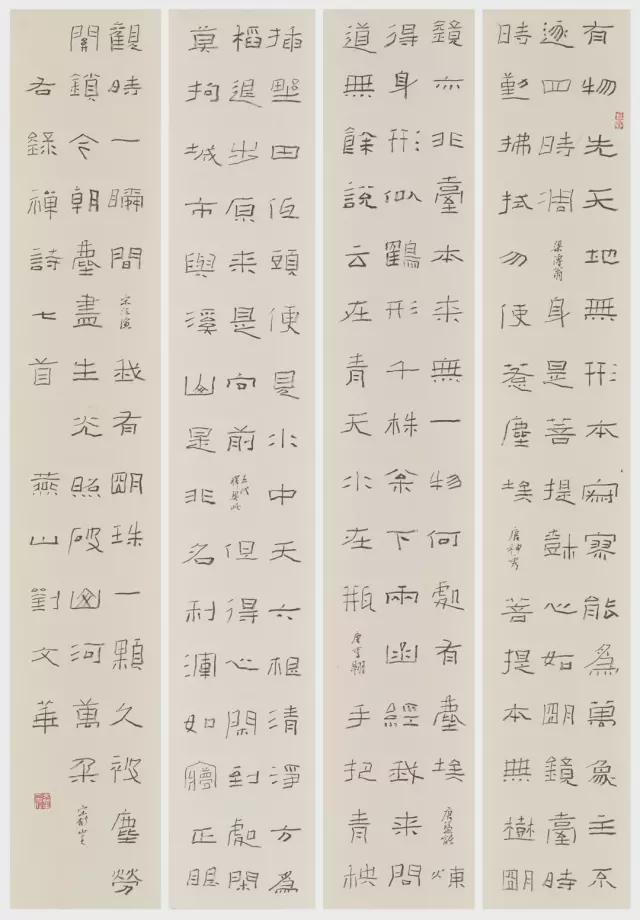 有物先天地無形本寂寥能為萬象主不
逐四時凋梁傅翕身是菩提樹心如明鏡臺時
時勤拂拭勿使惹塵埃唐神秀菩提本無樹明
鏡亦非臺本來無一物何處有塵埃唐慧能煉
得身形似鶴形千株松下兩函經我來問
道無餘說云在青天水在瓶唐李翱手把青秧
插野田低頭便見水中天六根清淨方為
稻退步原來是向前五代釋契此但得心閑到處閑
莫拘城市與溪山是非名利渾如夢正眼
觀時一瞬間宋法演我有明珠一顆久被塵勞
關鎖今朝塵盡生光照破山河萬朵宋郁山主
右錄禪詩七首燕山劉文華